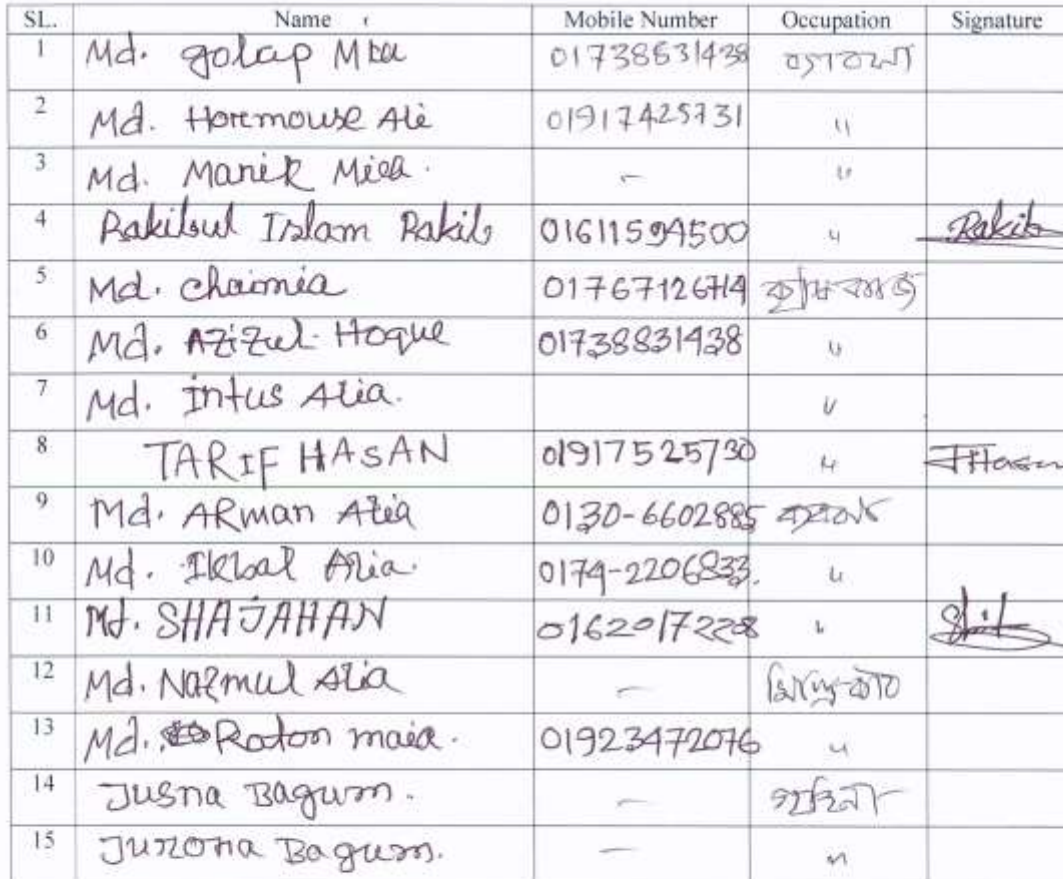 SL. Name Mobile Number Occupation Signature
1 Md. golap Mia 01738831438 ব্যবসা
2 Md. Horemouse Ali 01917425731 "
3 Md. Manik Miea. -
4 Rakibul Islam Rakib 01611594500 " Rakib
5 Md. chaimia 01767126714
6 Md. Azizul Hoque 01738831438 "
7 Md. Intus Alia. "
8 TARIF HASAN 01917525730 " THasan
9 Md. ARman Alia 0130-6602885
10 Md. Ikbal Alia. 0174-2206833. "
11 Md. SHAJAHAN 01620172208 "
12 Md. Nazmul Alia -
13 Md. Roton maia. 01923472076 "
14 Jusna Bagum. - গৃহিনী
15 Junona Bagum. - "